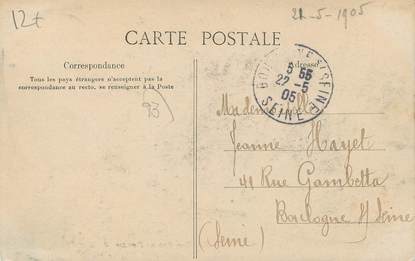 12+
22-5-1905
CARTE POSTALE
Correspondance
Adresse
Tous les pays étrangers n'acceptent pas la
correspondance au recto, se renseigner à la Poste
93
5 55
22 -5
05
SEINE
Mademoiselle
Jeanne Hayet
41 Rue Gambetta
Boulogne s/ Seine
(Seine)